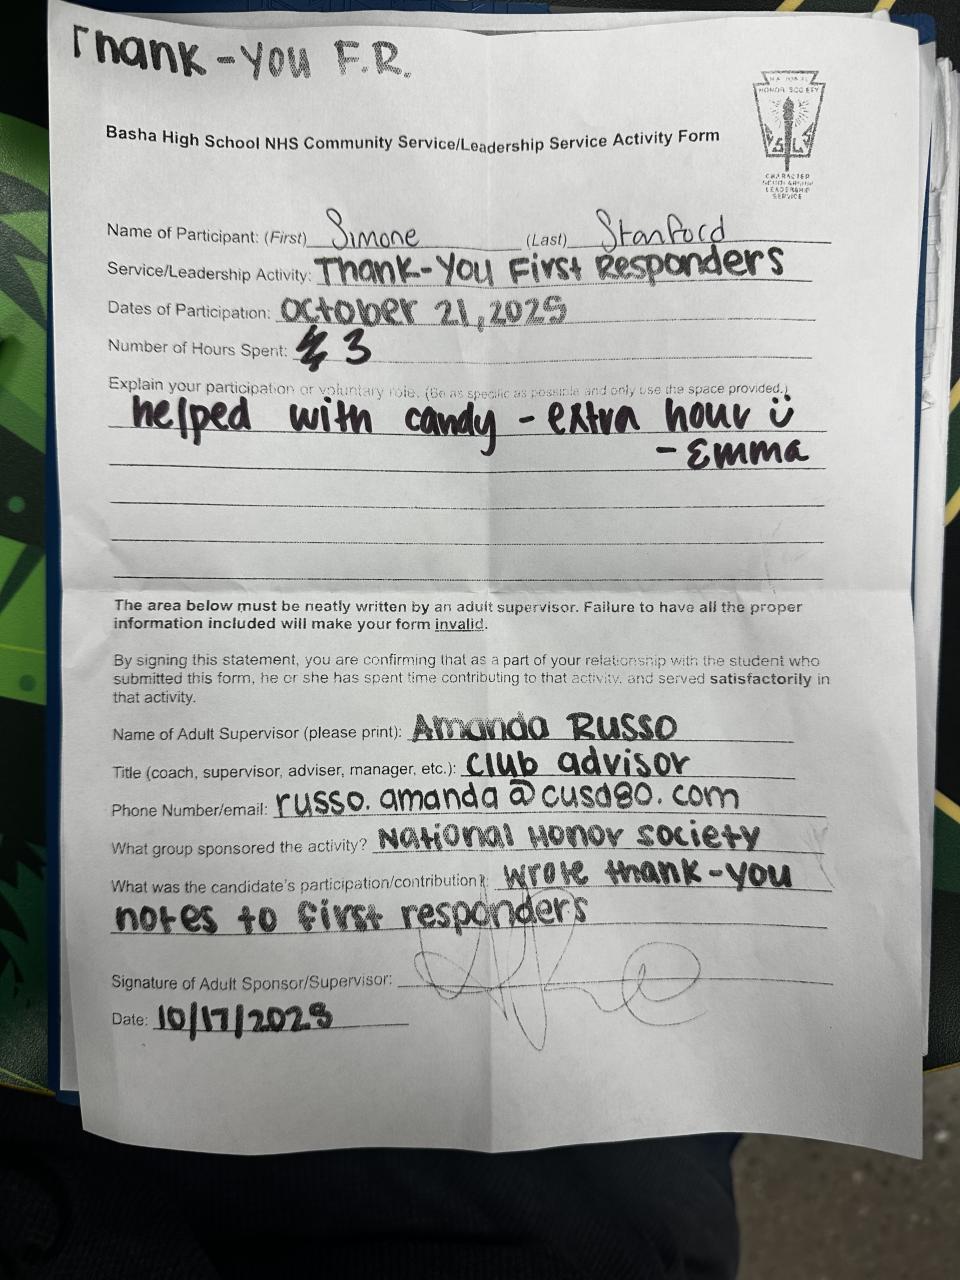 Thank-You F.R.
NATIONAL
HONOR SOCIETY
CHARACTER
SCHOLARSHIP
LEADERSHIP
SERVICE
Basha High School NHS Community Service/Leadership Service Activity Form
Name of Participant: (First) Simone (Last) Stanford
Service/Leadership Activity: Thank-You First Responders
Dates of Participation: October 21, 2025
Number of Hours Spent: 3
Explain your participation or voluntary role. (Be as specific as possible and only use the space provided.)
helped with candy - extra hour
- Emma
The area below must be neatly written by an adult supervisor. Failure to have all the proper
information included will make your form invalid.
By signing this statement, you are confirming that as a part of your relationship with the student who
submitted this form, he or she has spent time contributing to that activity, and served satisfactorily in
that activity.
Name of Adult Supervisor (please print): Amanda Russo
Title (coach, supervisor, adviser, manager, etc.): Club advisor
Phone Number/email: russo.amanda@cusd80.com
What group sponsored the activity? National Honor Society
What was the candidate's participation/contribution?: Wrote thank-you
notes to first responders
Signature of Adult Sponsor/Supervisor:
Date: 10/17/2025